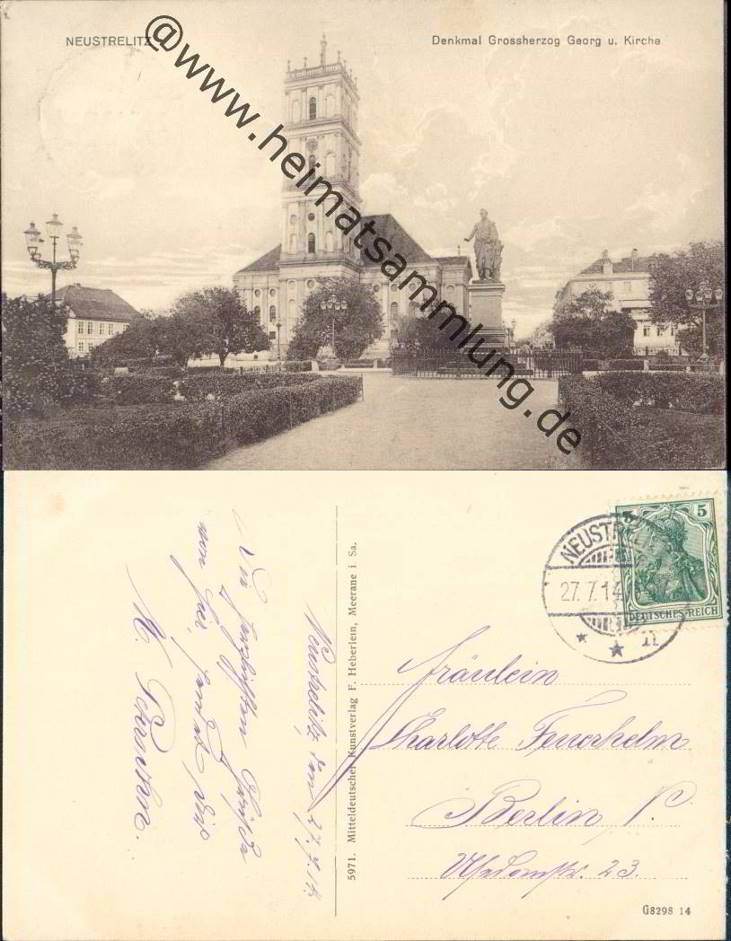 NEUSTRELITZ
Denkmal Grossherzog Georg u. Kirche
@www.heimatsammlung.de
Die herzlichsten Grüße
von hier sendet Dir
M.
Neustrelitz, den 27.7.14.
5971. Mitteldeutscher Kunstverlag F. Heberlein, Meerane i. Sa.
NEUSTRELITZ
27.7.14
5
DEUTSCHES REICH
Fräulein
Charlotte Feuerhelm
Berlin N.
23.
G8298 14